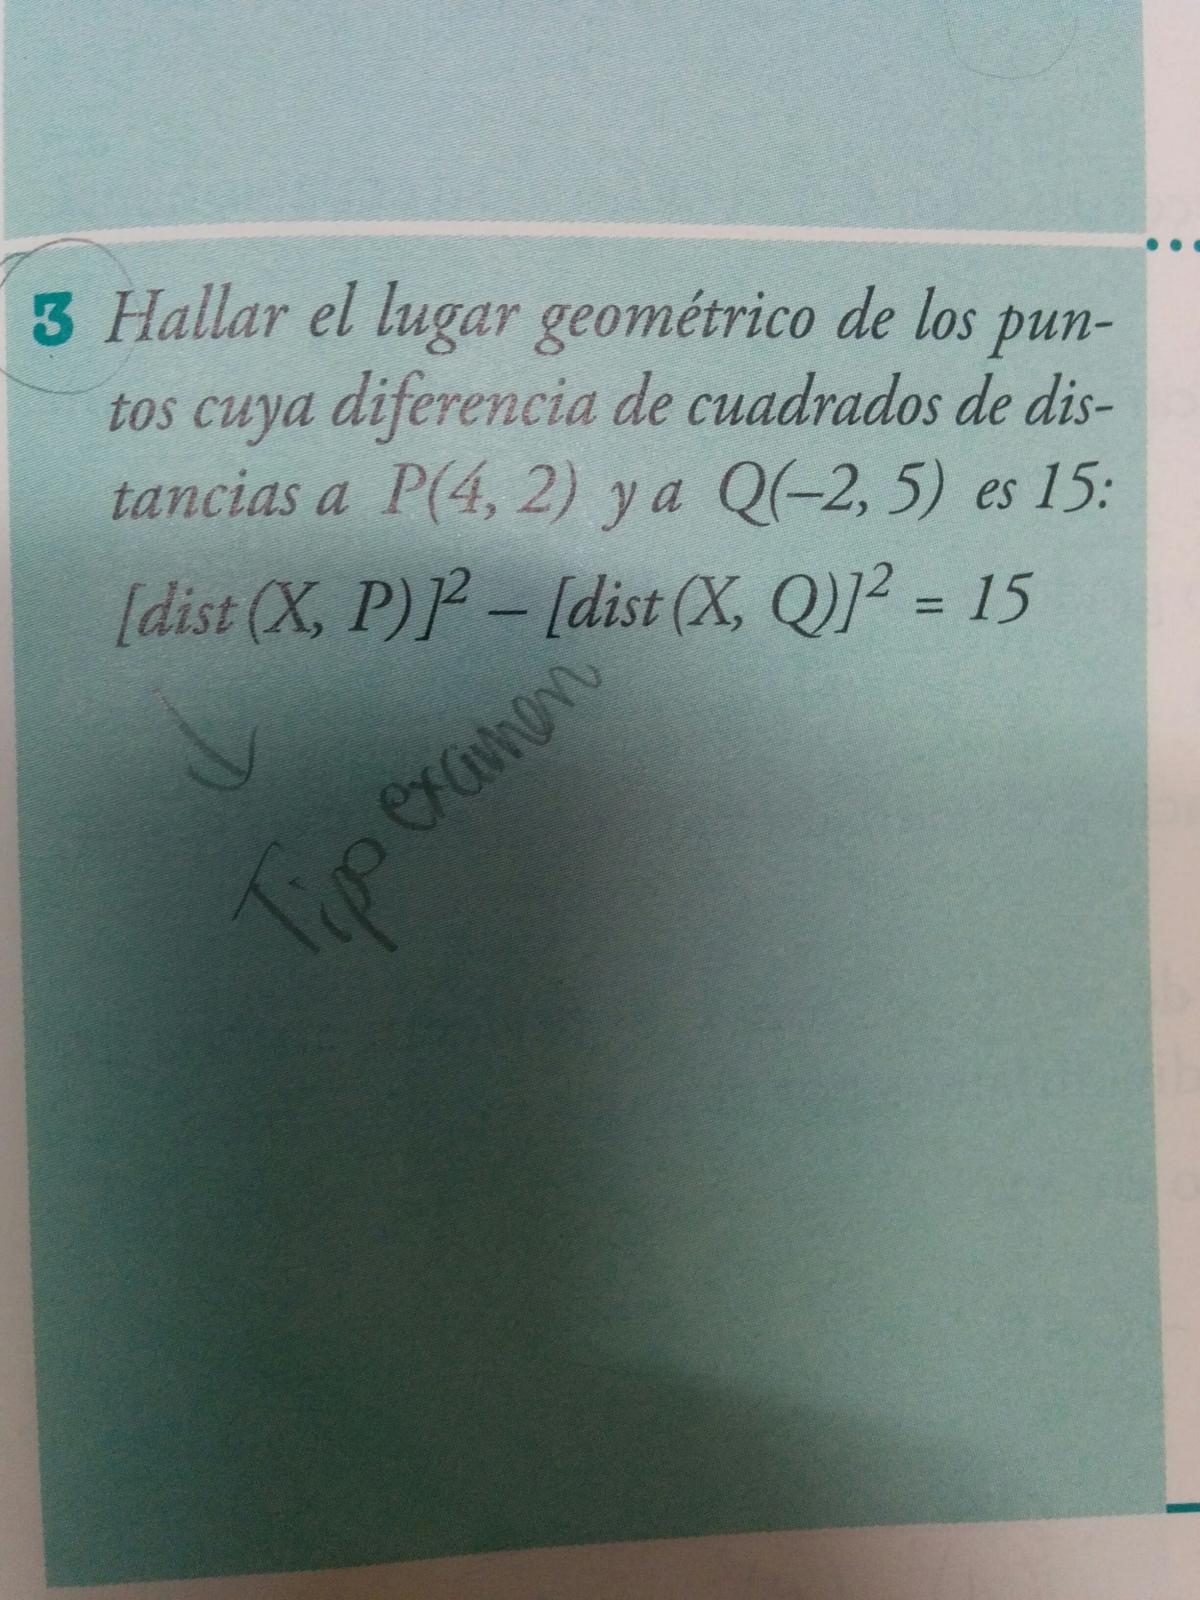 3 Hallar el lugar geométrico de los pun-
tos cuya diferencia de cuadrados de dis-
tancias a P(4, 2) y a Q(–2, 5) es 15:
[dist (X, P)]² – [dist (X, Q)]² = 15
Tipo examen